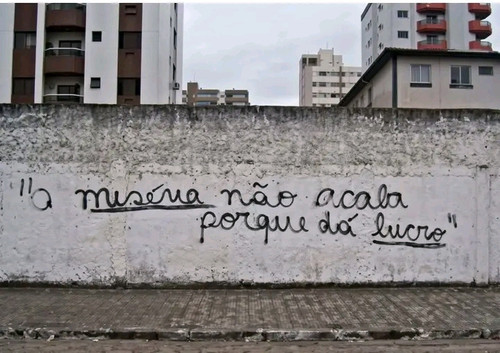 "a miséria não acaba
porque dá lucro"